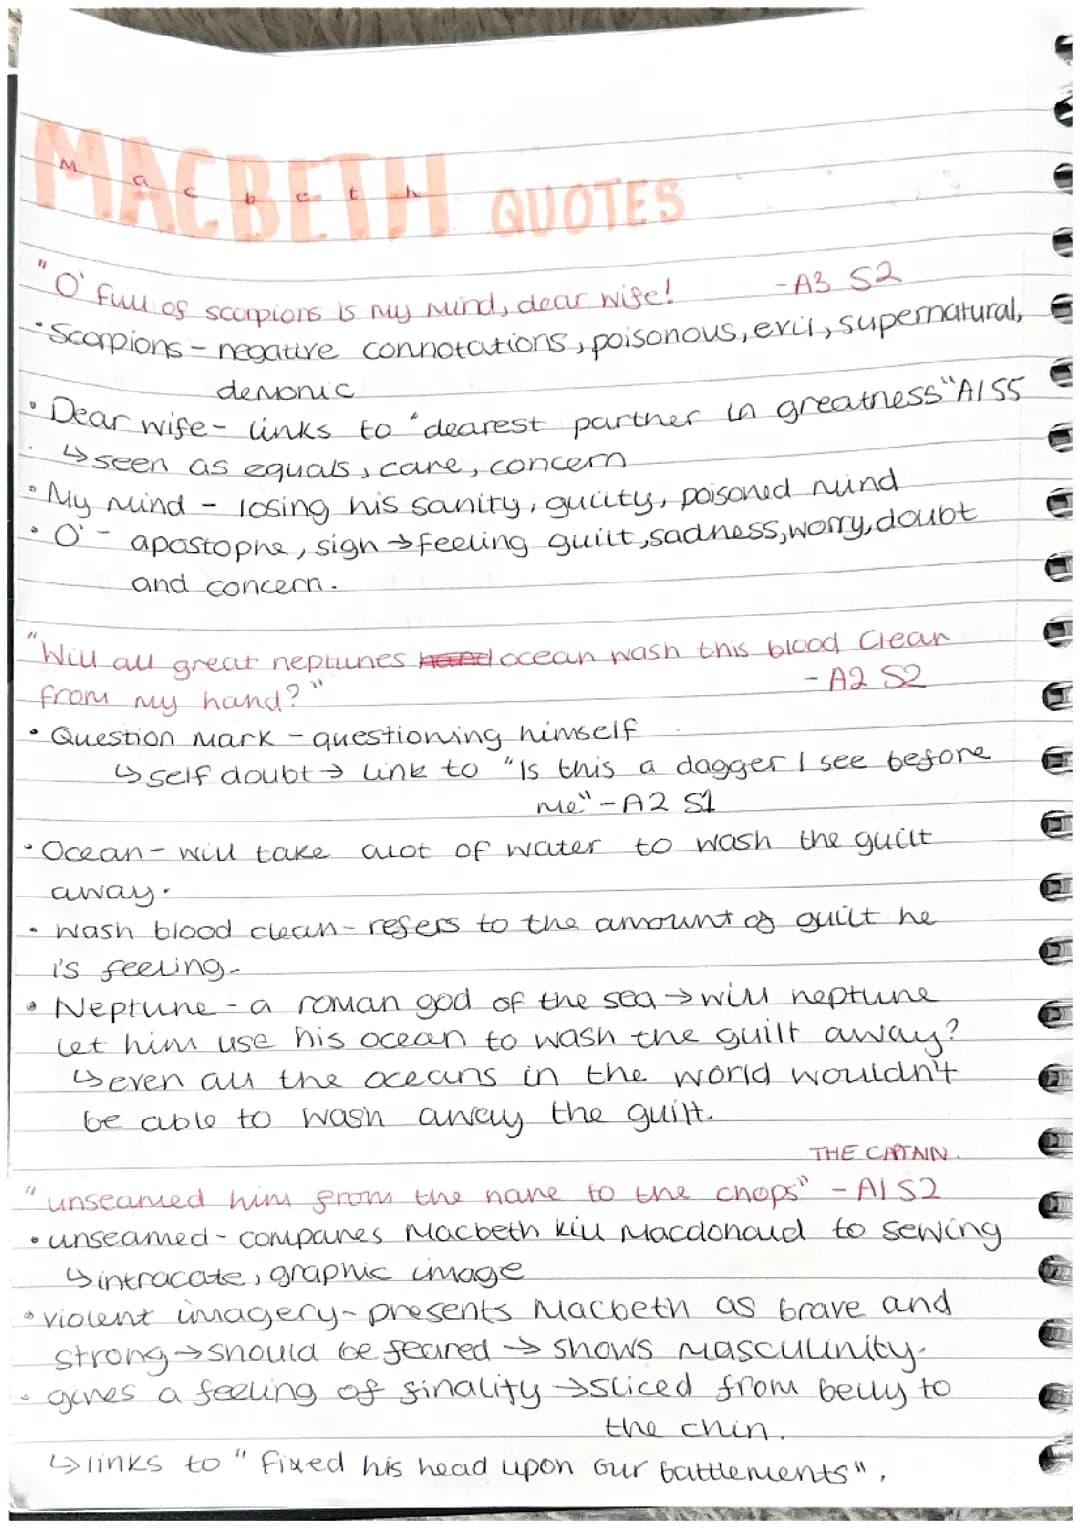 MACBETH QUOTES
M a c b e t h
"O' full of scorpions is my mind, dear wife! -A3 S2
• Scorpions - negative connotations, poisonous, evil, supernatural,
demonic
• Dear wife- links to "dearest partner in greatness" A1 S5
↳ seen as equals, care, concern
• My mind - losing his sanity, guilty, poisoned mind
• O' - apostophe, sigh → feeling guilt, sadness, worry, doubt
and concern.
"Will all great neptunes hand ocean wash this blood clean
from my hand?" - A2 S2
• Question mark - questioning himself
↳ self doubt → link to "Is this a dagger I see before
me" - A2 S1
• Ocean - will take alot of water to wash the guilt
away.
• wash blood clean - refers to the amount of guilt he
is feeling.
• Neptune - a roman god of the sea → will neptune
let him use his ocean to wash the guilt away?
↳ even all the oceans in the world wouldn't
be able to wash away the guilt.
THE CAPTAIN.
"unseamed him from the nave to the chops" - A1 S2
• unseamed - compares Macbeth kill Macdonald to sewing
↳ intracate, graphic image
• violent imagery - presents Macbeth as brave and
strong → should be feared → shows masculinity.
• gives a feeling of finality → sliced from belly to
the chin.
↳ links to "fixed his head upon our battlements".